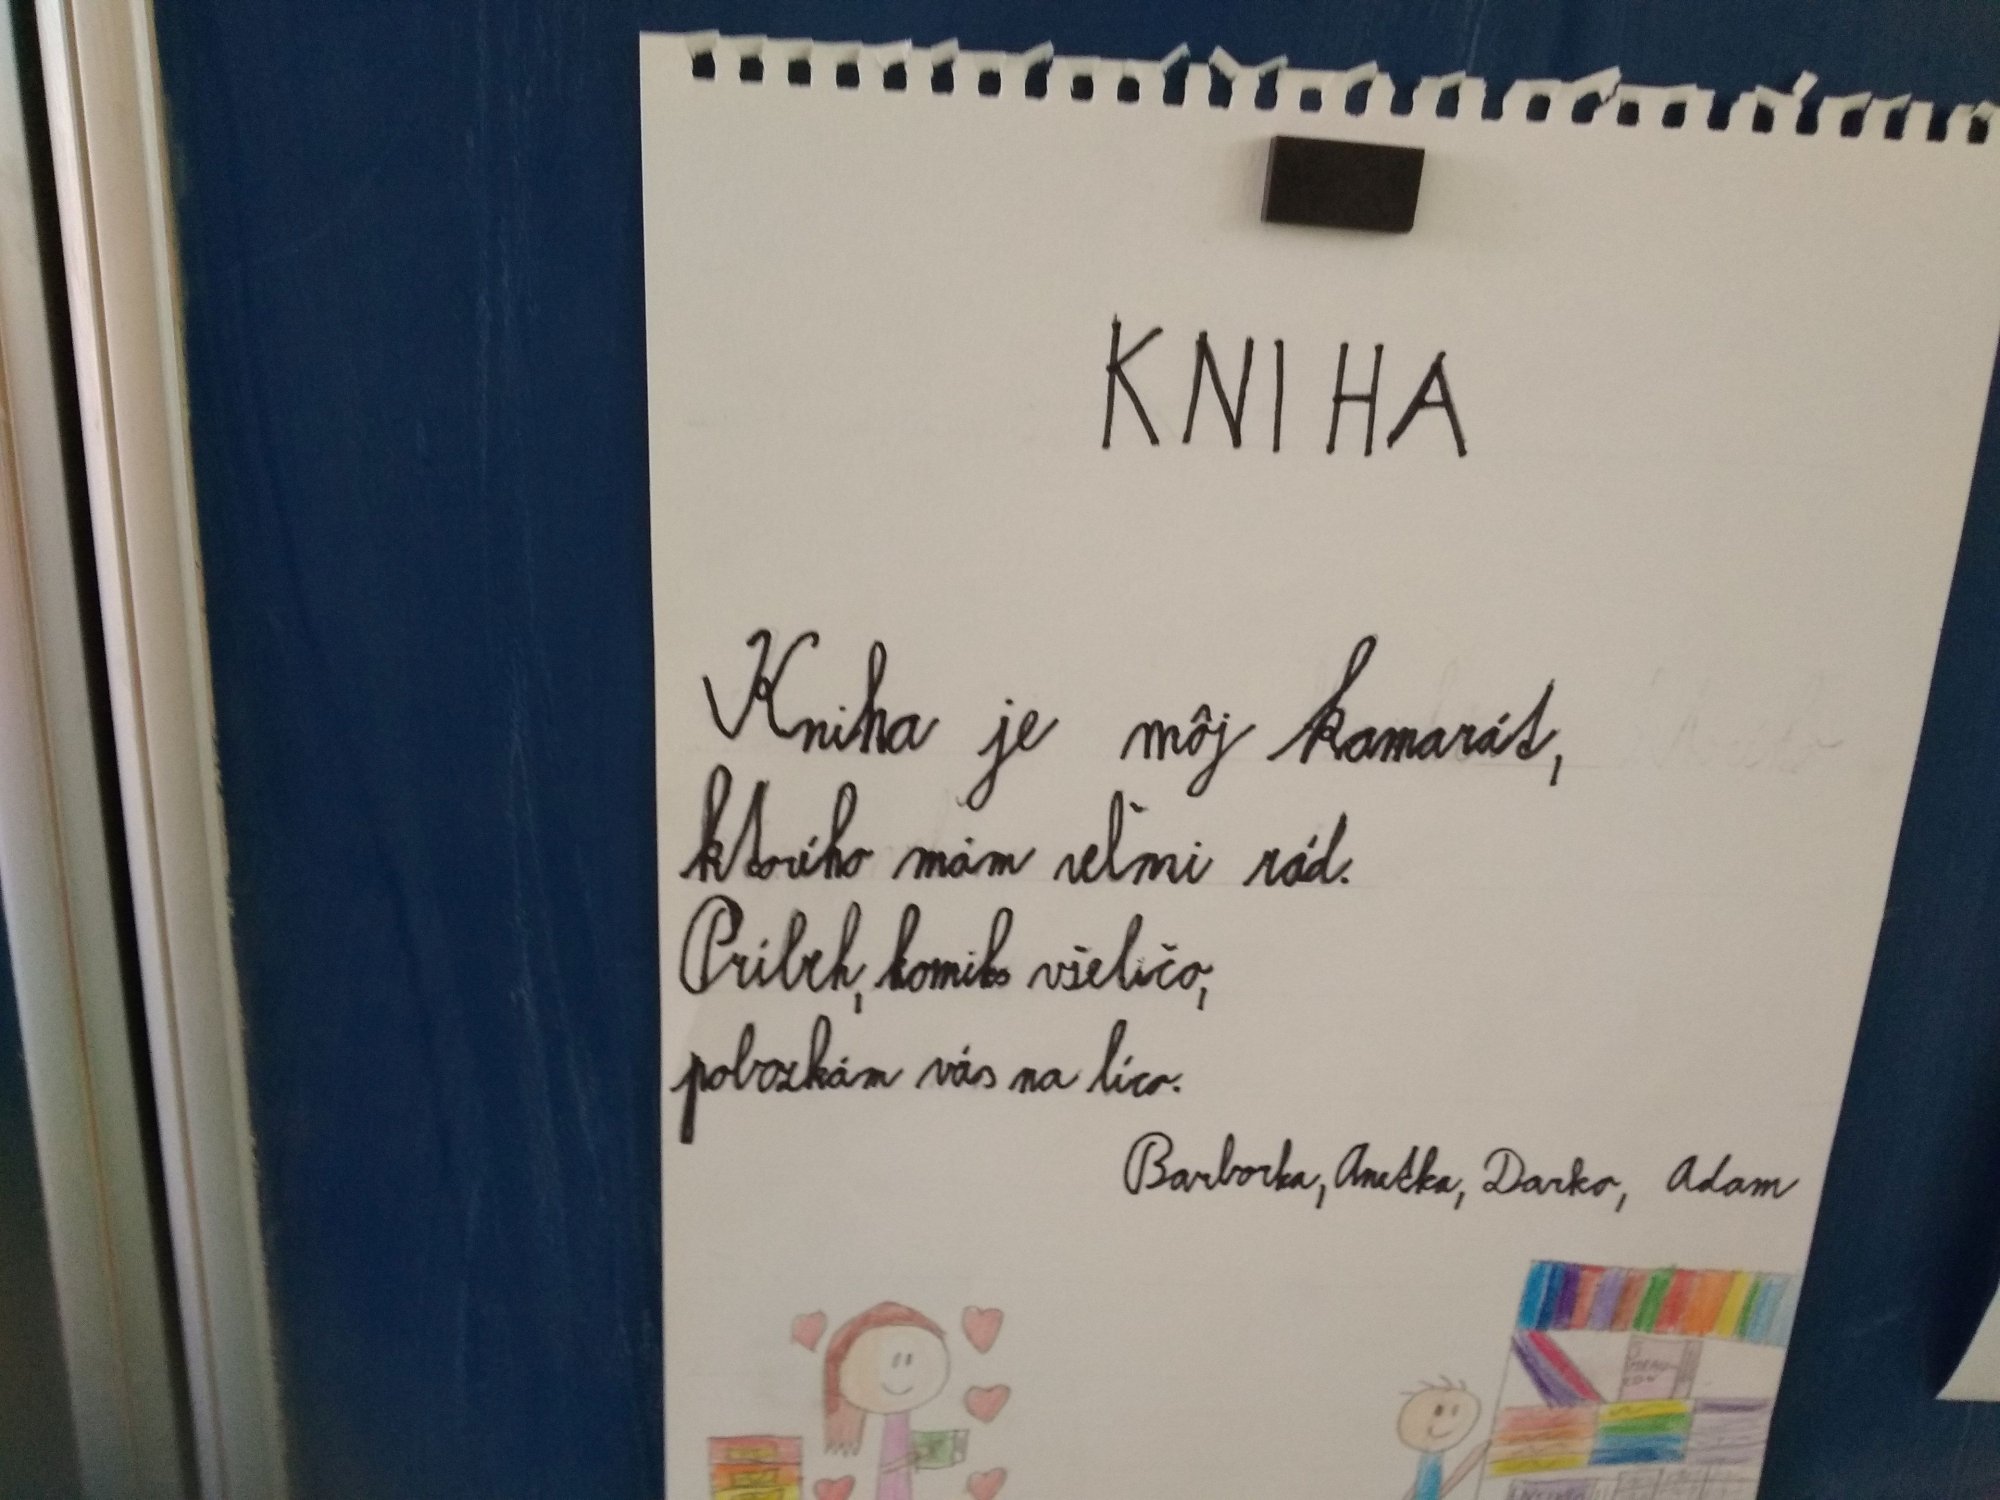 KNIHA
Kniha je môj kamarát,
ktorého mám veľmi rád.
Príbeh, komiks všeličo,
pobozkám vás na líco.
Barborka, Anetka, Darko, Adam